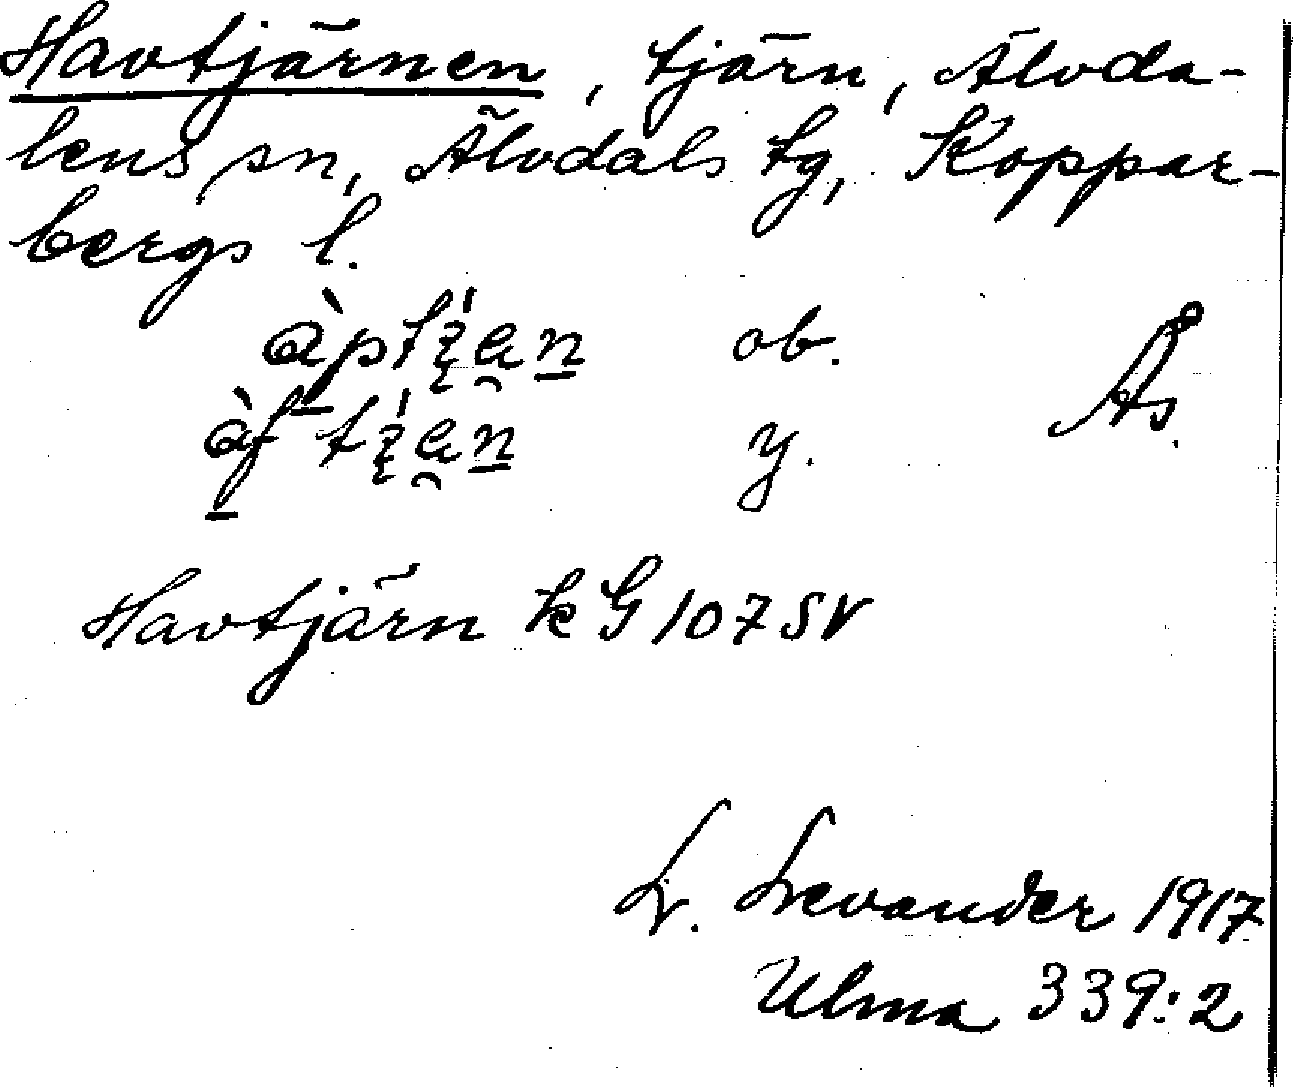 Havtjärnen, tjärn, Älvda-
lens sn, Älvdals tg, Koppar-
bergs l.
ob. Ås.
y.
Havtjärn k G 107 SV
L. Levander 1917
Ulma 339:2